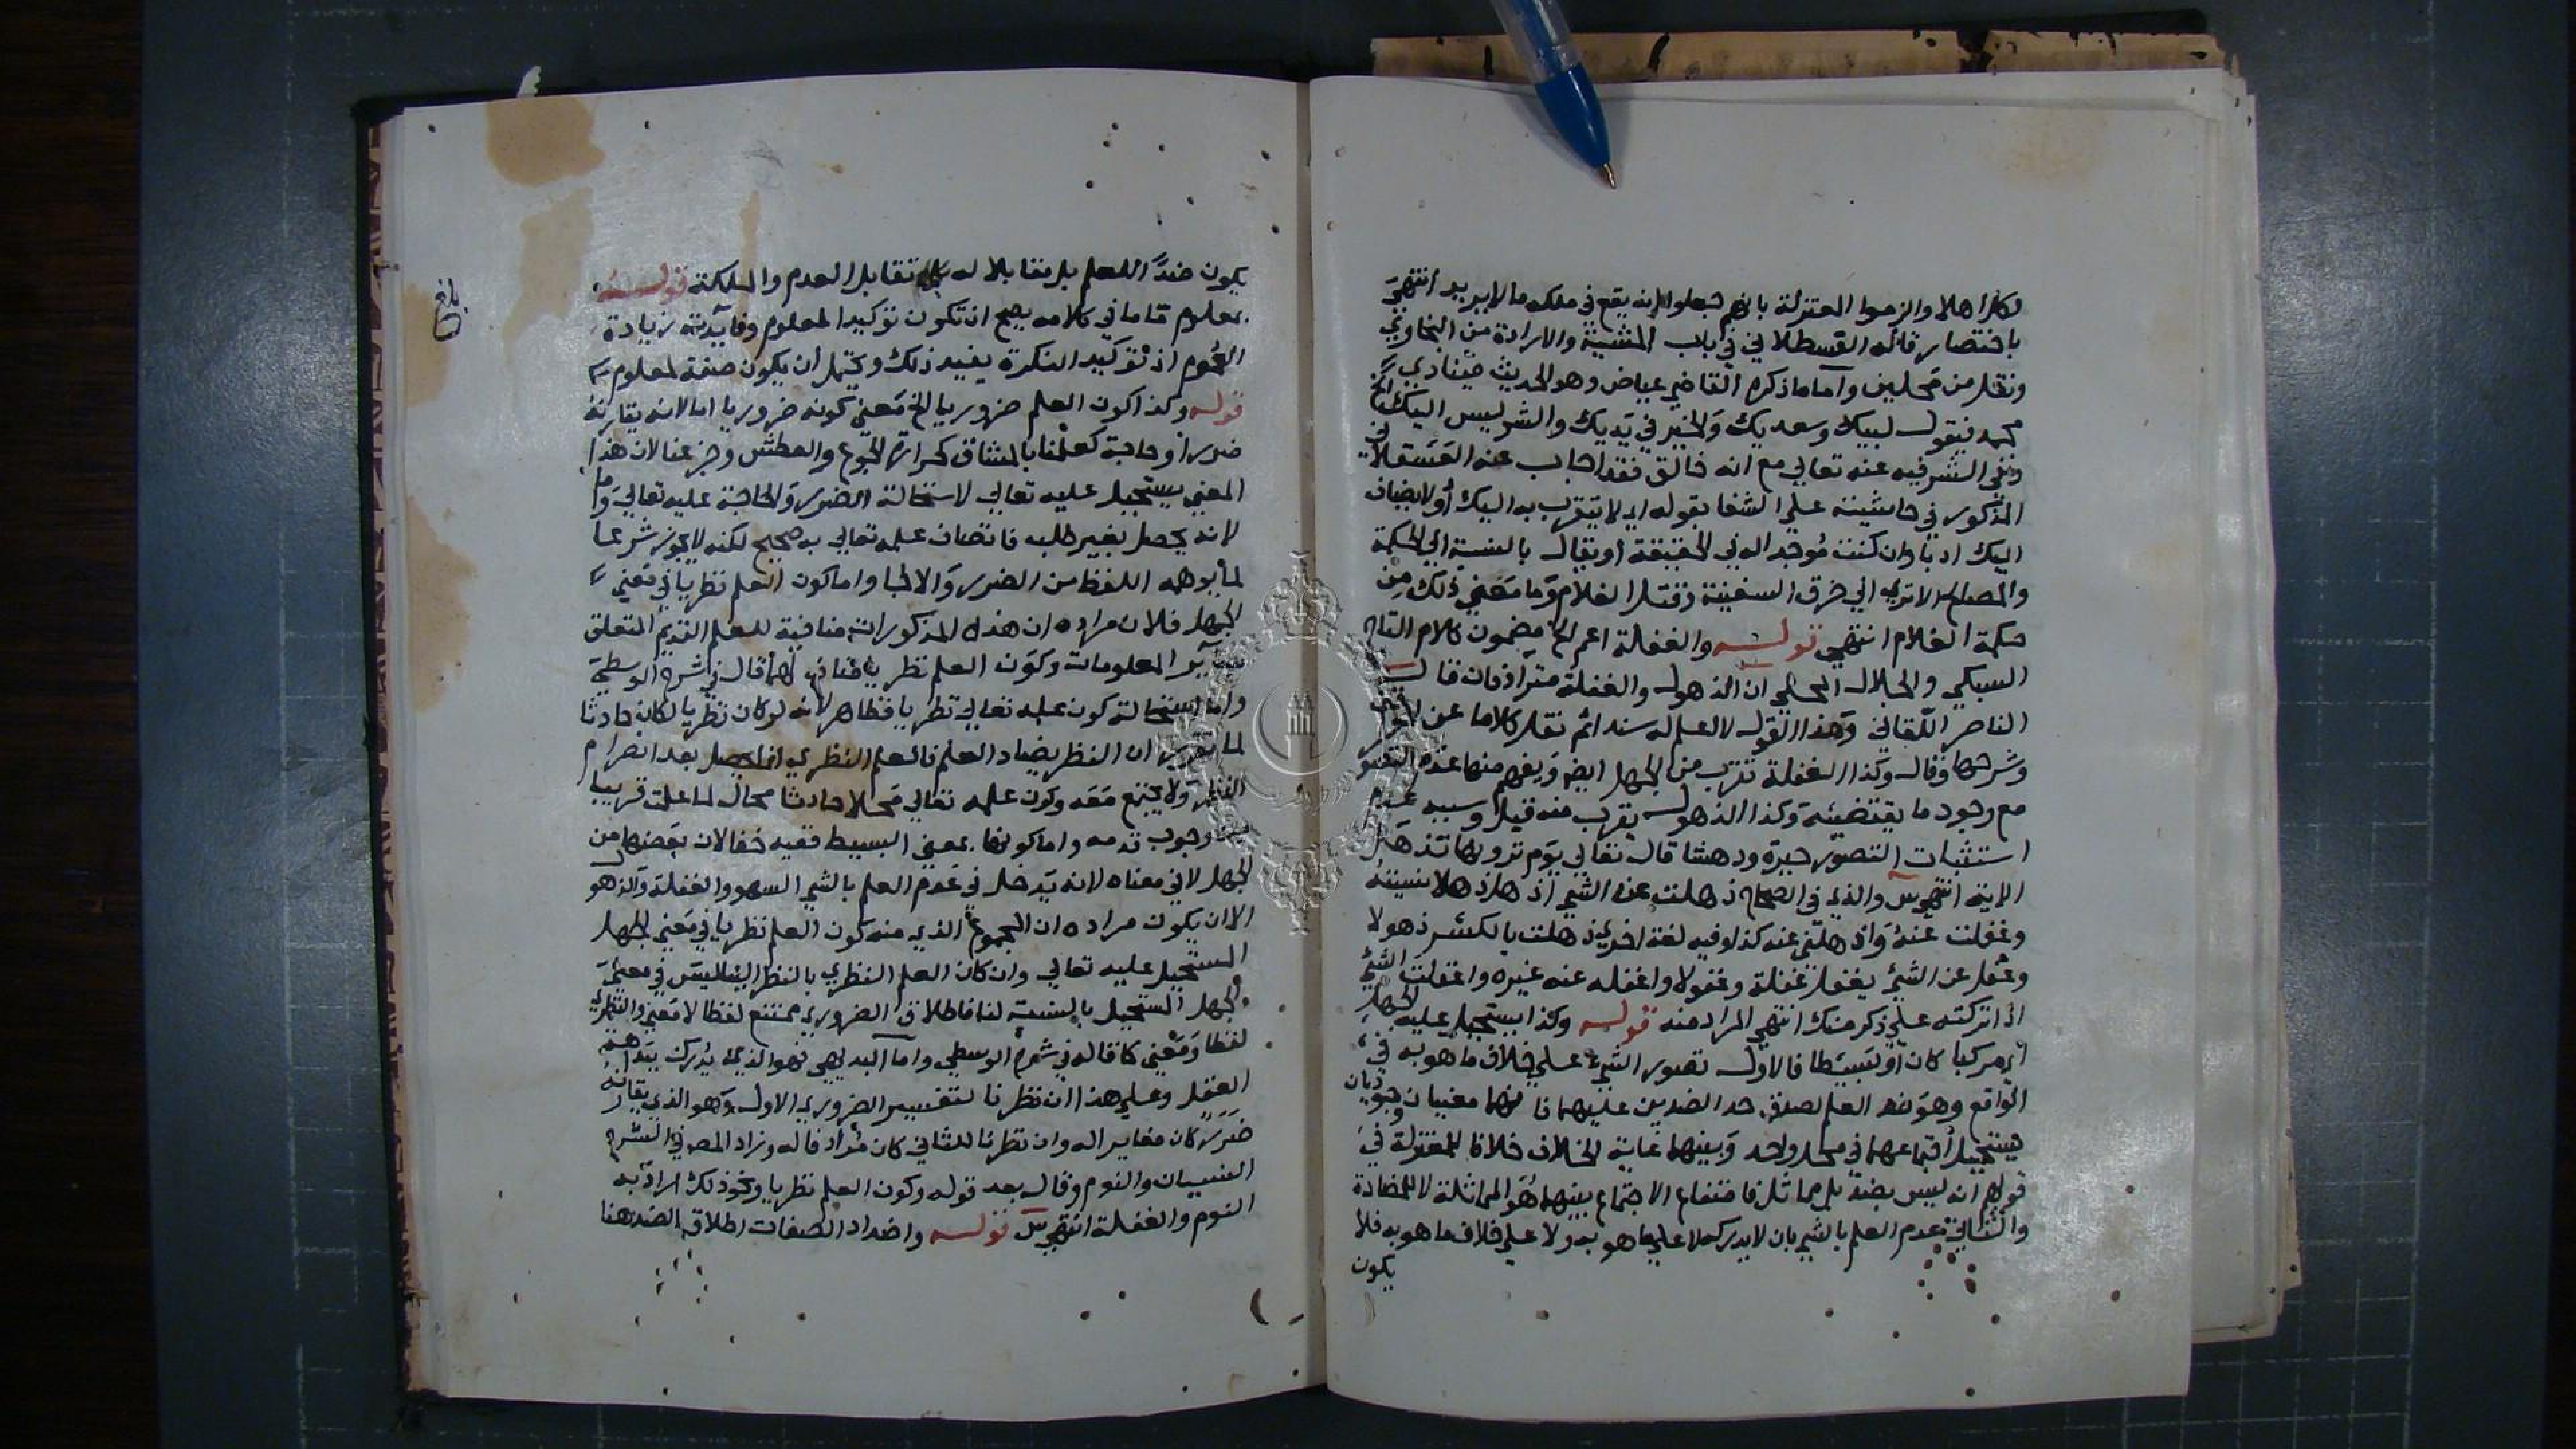 لكارها هلا والزموا المعتزلة بانهم جعلوا انه يقع في ملكه ما لا يريد انتهى
باختصار قاله القسطلاني في باب المشيئة والارادة من البخاري
ونقل من محلين واما ما ذكره القاضي عياض وهو الحديث فينادي الخ
محمد فيقول لبيك وسعديك والخير في يديك والشر ليس اليك
ونفى الشر فيه عنه تعالى مع انه خالق فقد اجاب عنه العسقلاني
المذكور في حاشيته على الشفا بقوله اي لا يتقرب به اليك او لا يضاف
اليك ادبا وان كنت موجدا له في الحقيقة او يقال بالنسبة الى الحكمة
والمصالح الا ترى الى خرق السفينة وقتل الغلام وما معنى ذلك من
حكمة الغلام انتهى قوله والغفلة اعم الخ مضمون كلام التاج
السبكي والجلال المحلي ان الذهول والغفلة مترادفان قال
الناصر اللقاني وهذا القول لا العلم له سند اثم نقل كلاما عن
وشرحها وقال وكذا الغفلة تقرب من الجهل ايضا ويفهم منها عدم التصور
مع وجود ما يقتضيه وكذا الذهول يقرب منه قيل وسببه عدم
استثبات التصور حيرة ودهشا قال تعالى يوم ترونها تذهل
الاية انتهى س والذي في الصحاح ذهلت عن الشي اذهل ذهلا نسيته
وغفلت عنه واذهلني عنه كذا وفيه لغة اخرى ذهلت بالكسر ذهولا
وغفل عن الشي يغفل غفلة وغفولا واغفله عنه غيره واغفلت الشي
اذا تركته على ذكر منك انتهى المراد منه قوله وكذا يستحيل عليه الجهل
اي مركبا كان او بسيطا فالاول تصور الشي على خلاف ما هو به في
الواقع وهو ضد العلم لصدق حد الضدين عليهما فانهما معنيان وجوديان
يستحيل اجتماعهما في محل واحد وبينهما غاية الخلاف خلافا للمعتزلة في
قولهم انه ليس بضد بل مماثل فامتناع الاجتماع بينهما هو المماثلة لا للمضادة
والثاني عدم العلم بالشي بان لا يدرك لا على ما هو به ولا على خلاف ما هو به فلا
يكون
يكون ضدا للعلم بل مقابلا له تقابل العدم والملكة قوله
بمعلوم ما ما في كلامه يصح ان تكون توكيدا لمعلوم وفايدته زيادة
العموم اذ توكيد النكرة يفيد ذلك ويحتمل ان يكون صفة لمعلوم
قوله وكذا كون العلم ضروريا الخ معنى كونه ضروريا اما لانه يقارنه
ضرر او حاجة كعلمنا بالمشاق كحرارة الجوع والعطش وجزعنا لان هذا
المعنى يستحيل عليه تعالى لاستحالة الضرر والحاجة عليه تعالى واما
لانه يحصل بغير طلبه فاتصاف علمه تعالى به صحيح لكنه لا يجوز شرعا
لما يوهمه اللفظ من الضرر والالجا واما كون العلم نظريا في معنى
الجهل فلان مراده ان هذه المذكورات منافية للعلم القديم المتعلق
بساير المعلومات وكون العلم نظريا مناف لها قال في شرح الوسطى
واما استحالة كون علمه تعالى نظريا فظاهر لانه لو كان نظريا لكان حادثا
لما تقرر ان النظر يضاد العلم فالعلم النظري انما يحصل بعد انصرام
النظر ولا يجتمع معه وكون علمه تعالى محلا حادثا محال لما علمت قريبا
من وجوب قدمه واما كونها بمعنى البسيط ففيه خفا لان بعضها من
الجهل لا في معناه لانه يدخل في عدم العلم بالشي السهو والغفلة والذهول
الا ان يكون مراده ان المجموع الذي منه كون العلم نظريا في معنى الجهل
المستحيل عليه تعالى وان كان العلم النظري بالنظر الينا ليس في معنى
الجهل المستحيل بالنسبة لنا فاطلاق الضروري ممتنع لفظا لا معنى والنظري
لفظا ومعنى كما قاله في شرح الوسطى واما البديهي فهو الذي يدرك ببداهة
العقل وعلى هذا ان نظرنا لتفسير الضروري الاول وهو الذي يقارنه
ضرر كان مغايرا له وان نظرنا للثاني كان مرادفا له وزاد المصه في الشرح
النسيان والنوم وقال بعد قوله وكون العلم نظريا ونحو ذلك اراد به
النوم والغفلة انتهى س قوله واضداد الصفات اطلاق الضد هنا
بلغ